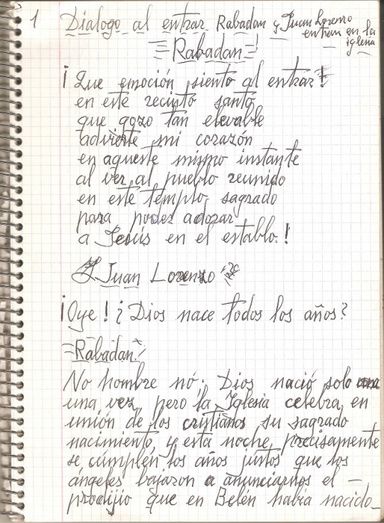 1 Dialogo al entrar Rabadan y Juan Lorenzo
entran en la
iglesia
Rabadan
¡Que emoción siento al entrar!
en este recinto santo
que gozo tan elevable
advierte mi corazón
en aqueste mismo instante
al ver al pueblo reunido
en este templo sagrado
para poder adorar
a Jesús en el establo.!
Juan Lorenzo
¡Oye! ¿Dios nace todos los años?
Rabadan
No hombre nó. Dios nació solo
una vez, pero la Iglesia celebra en
unión de los cristianos su sagrado
nacimiento, y esta noche, precisamente
se cumplen los años juntos que los
ángeles bajaron a anunciarnos el -
prodijio que en Belén habia nacido